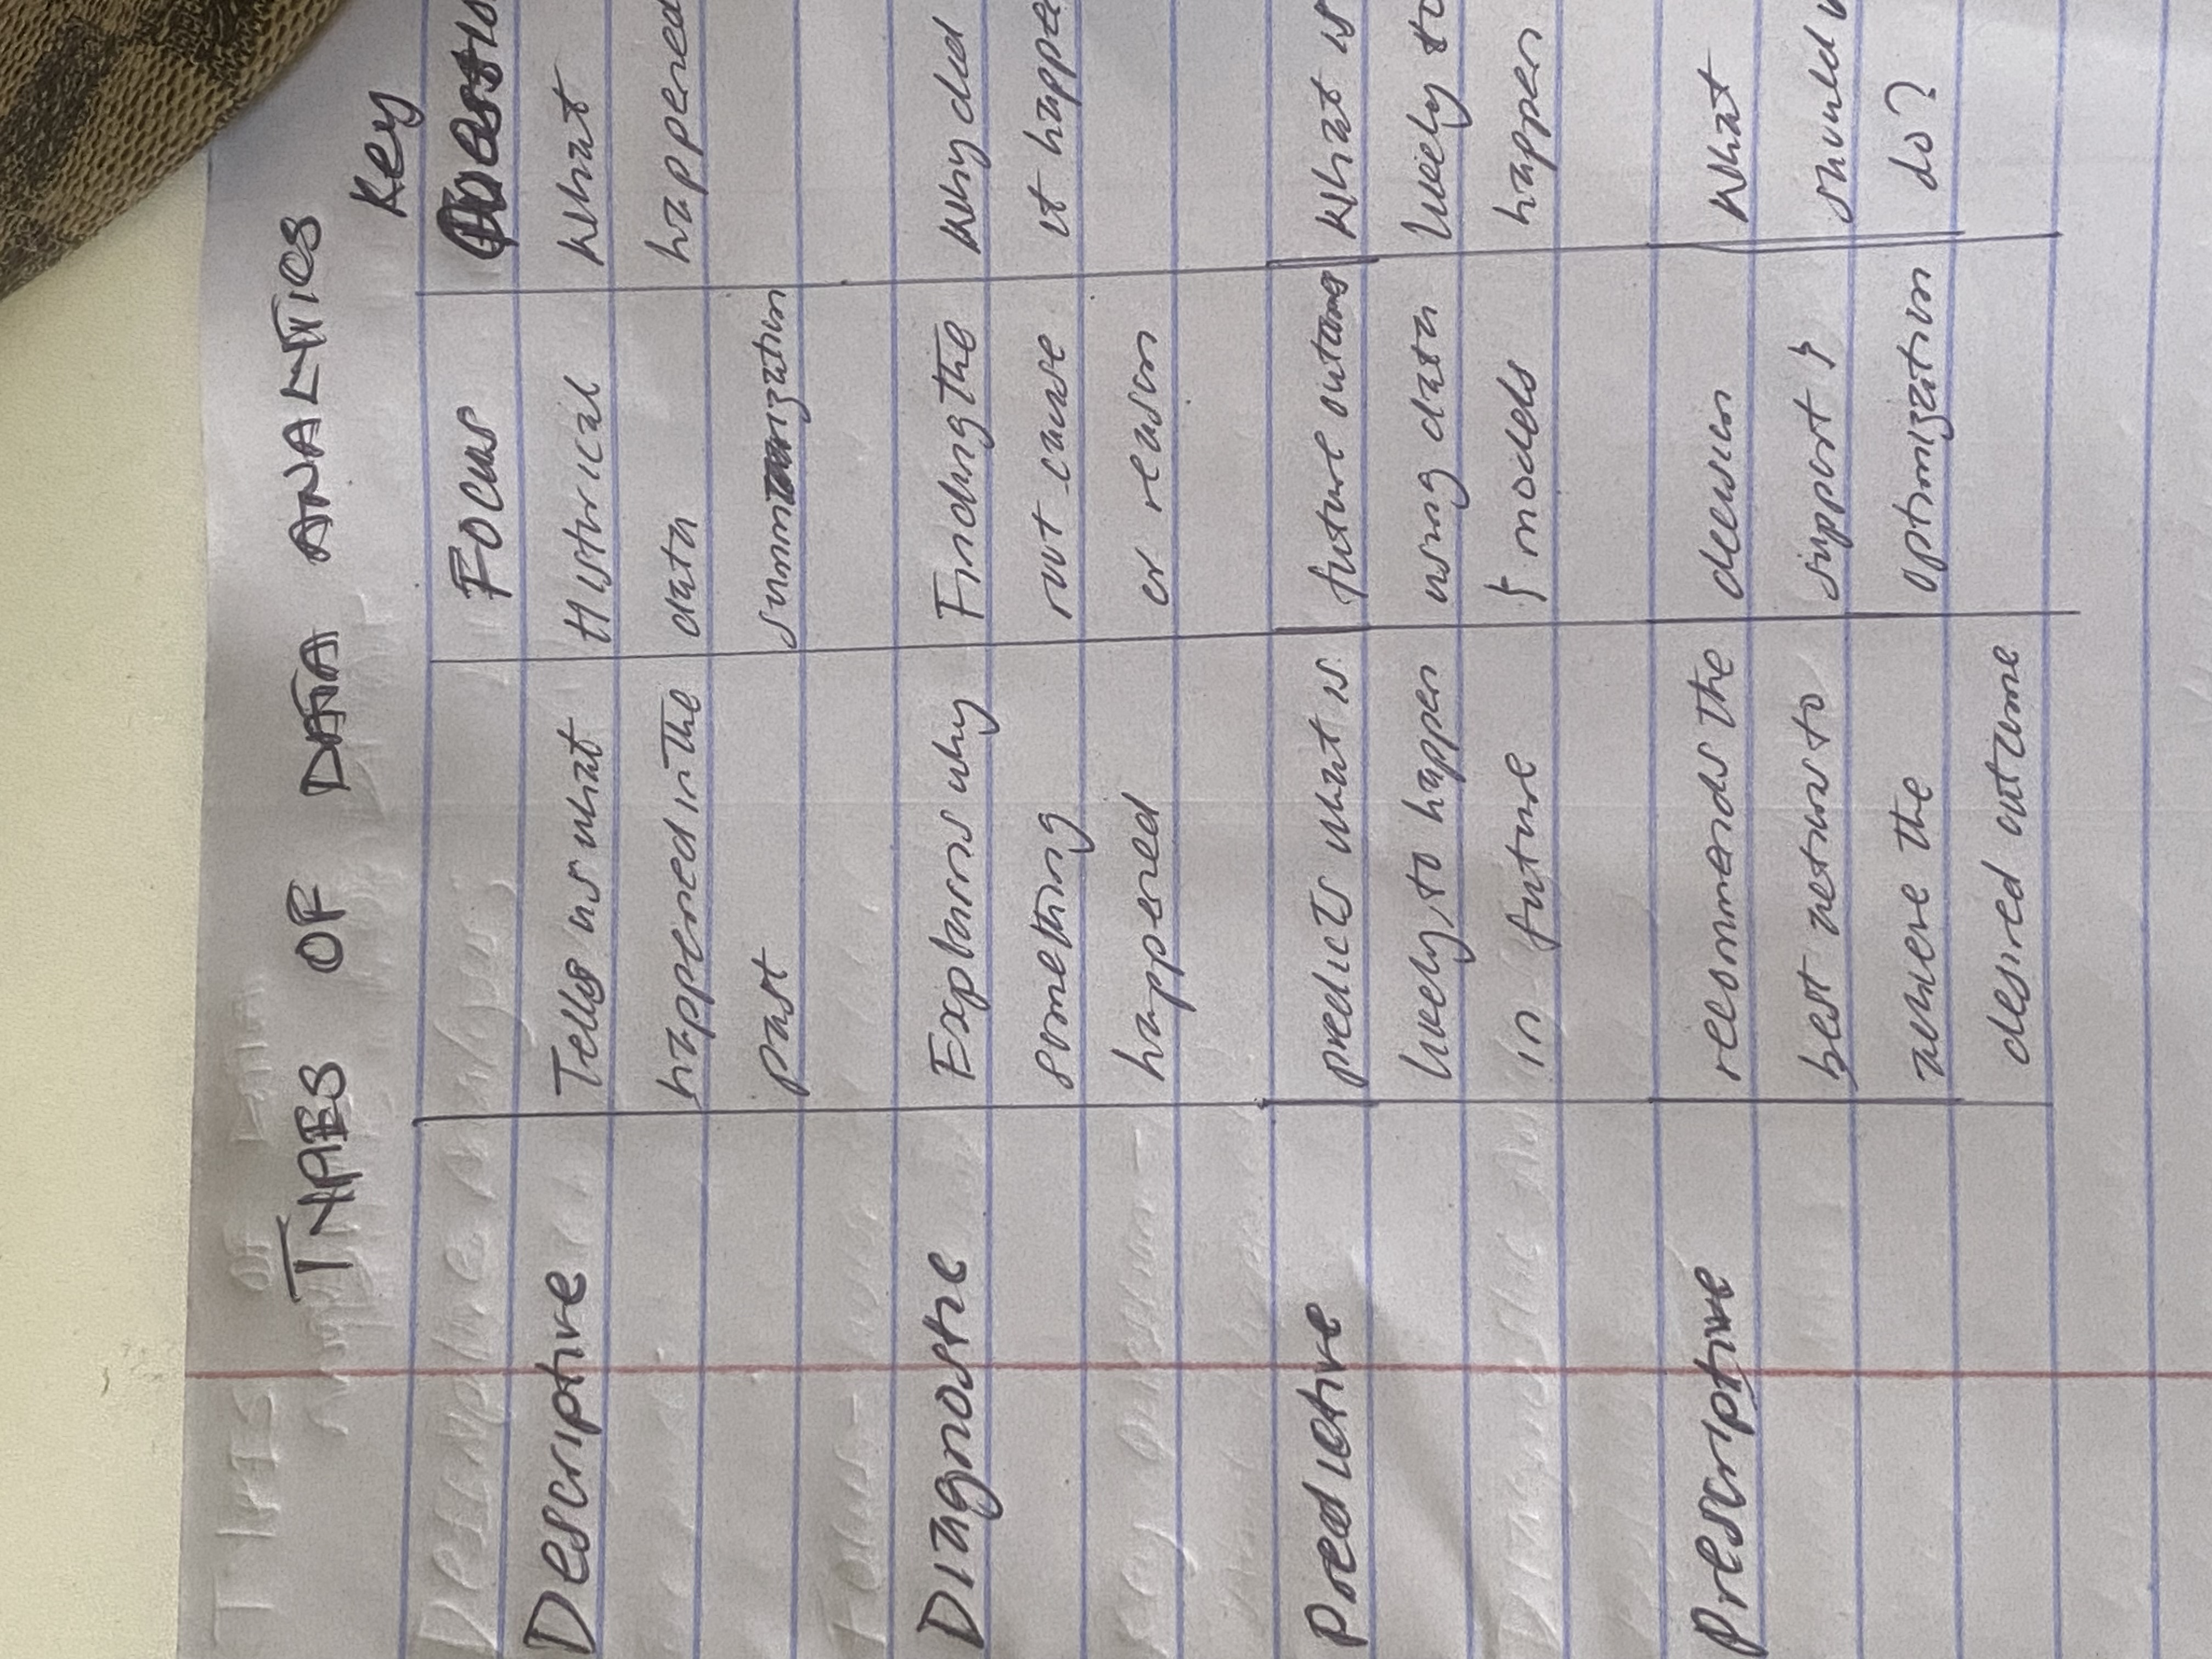 TYPES OF DATA ANALYTICS
Key
Focus Questio
Descriptive Tells us what Historical What
happened in the data happened
past summarization
Diagnostic Explains why Finding the Why did
something root cause it happe
happened or reason
Predictive predicts what is future outcome What is
likely to happen using data likely to
in future & models happen
Prescriptive recommends the decision What
best to support & should
achieve the optimization do?
desired outcome